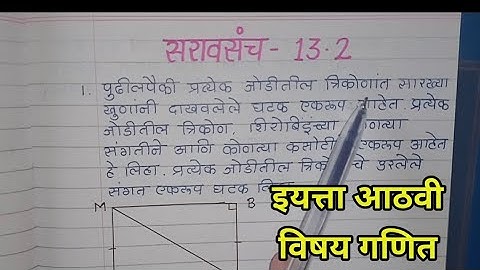 सरावसंच - 13.2
1. पुढीलपैकी प्रत्येक जोडीतील त्रिकोणांत सारख्या
खुणांनी दाखवलेले घटक एकरूप आहेत प्रत्येक
जोडीतील त्रिकोण, शिरोबिंदूंच्या
संगतीने आणि कोणत्या एकरूप आहेत
हे लिहा. प्रत्येक जोडीतील उरलेले
संगत एकरूप घटक
M B
इयत्ता आठवी
विषय गणित